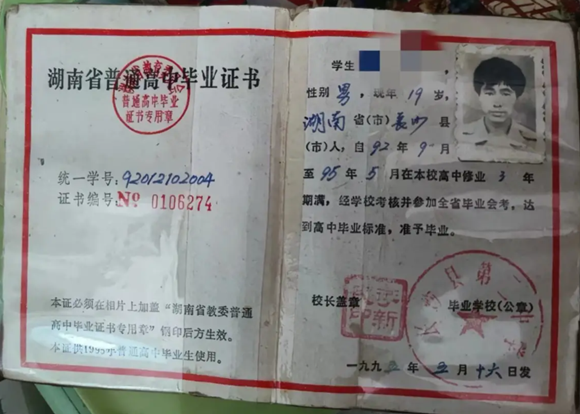 湖南省普通高中毕业证书
普通高中毕业
证书专用章
统一学号:92012102004
证书编号:№ 0106274
本证必须在相片上加盖“湖南省教委普通
高中毕业证书专用章”钢印后方生效。
本证供1995年普通高中毕业生使用。
学生
性别 男,现年 19 岁,
湖南 省(市) 长沙 县
(市)人,自 92 年 9 月
至 95 年 5 月在本校高中修业 3 年
期满,经学校考核并参加全省毕业会考,达
到高中毕业标准,准予毕业。
校长盖章
毕业学校(公章)
长沙县第
中学
一九九五 年 五 月 十六 日发